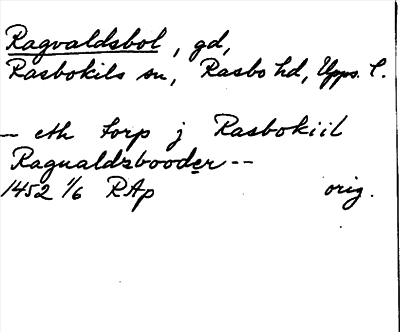 Ragvaldsbol, gd,
Rasbokils sn, Rasbo hd, Upps. l.
— eth torp j Rasbokiil
Ragualdzbooder --
1452 1/6 RAp orig.